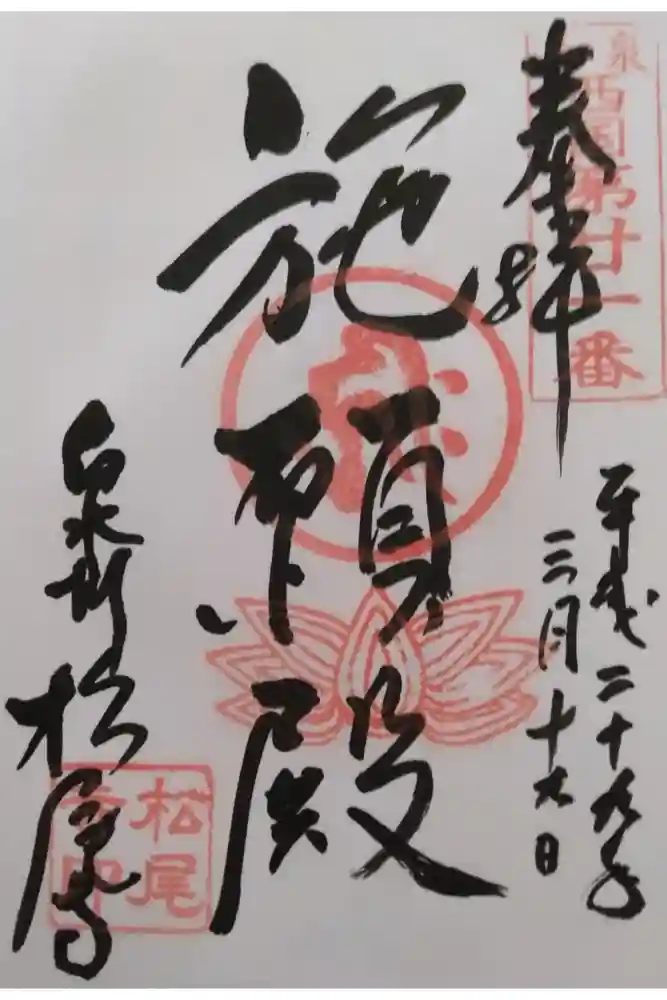 奉拝
泉西国第十一番
平成二十九年
三月十九日
施願殿
泉州松尾寺
松尾
寺印